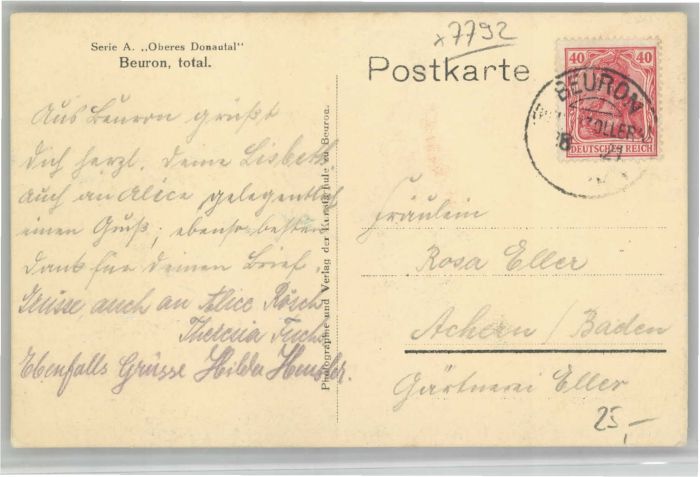 x7792
Serie A. „Oberes Donautal"
Beuron, total.
Postkarte
40 40
DEUTSCHES REICH
BEURON
21
Aus Beuron grüßt
dich herzl. deine Lisbeth
auch an Alice gelegentlich
einen Gruß; ebenso besten
Dank für deinen Brief.
Grüsse auch an Alice Rösch
Theresa Fuchs
Ebenfalls Grüsse Hilda
Photographie und Verlag der Kunstschule zu Beuron.
Fräulein
Rosa Eller
Achern / Baden
Gärtnerei Eller
25,-